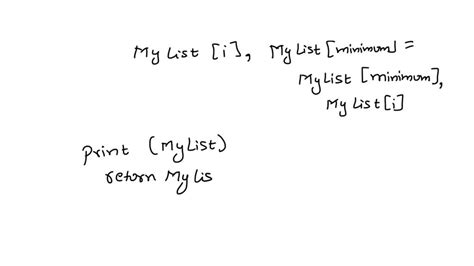 My List [i], My List [minimum] =
My List [minimum],
My List [i]
print (My List)
return My Lis